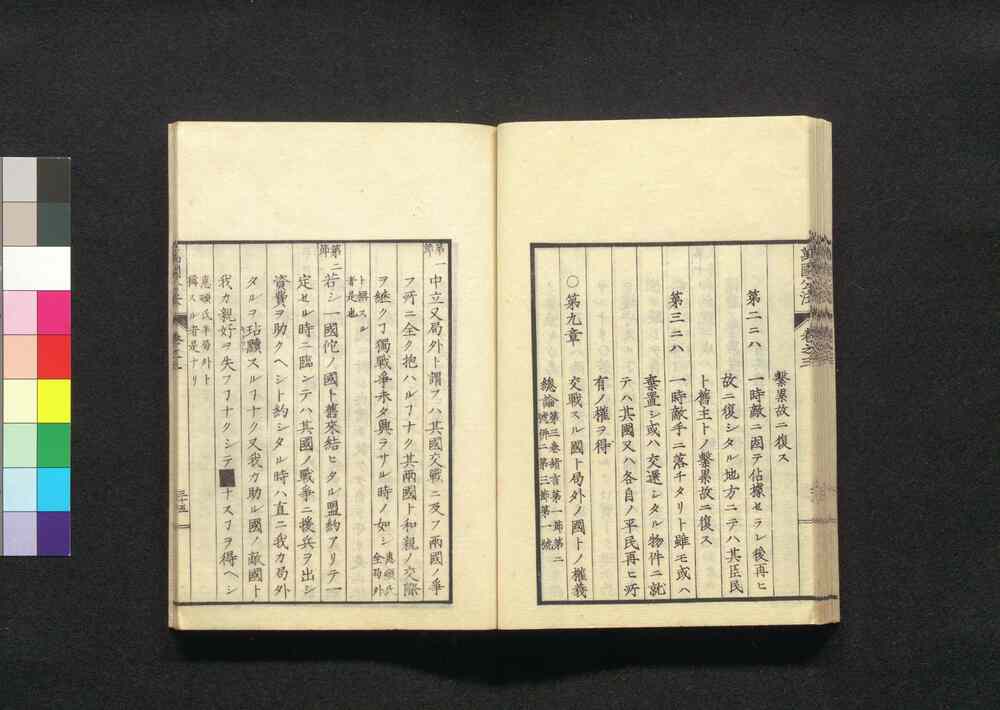 繫累故ニ復ス
第二ニハ　一時敵ニ因テ佔據セラレ後再ヒ
故ニ復シタル地方ニテハ其臣民
ト舊主トノ繫累故ニ復ス
第三ニハ　一時敵手ニ落チタリト雖モ或ハ
棄置シ或ハ交還シタル物件ニ就
テハ其國又ハ各自ノ平民再ヒ所
有ノ權ヲ得
○第九章　交戰スル國ト局外ノ國トノ權義
總論第三卷緒言第一節第二
號併ニ第三節第一號
第一節
中立又局外ト謂フハ其國交戰ニ及フ兩國ノ爭
フ所ニ全ク抱ハルヿナク其兩國ト和親ノ交際
ヲ繼クヿ獨戰爭未タ興ラサル時ノ如シ惠頓氏全局外
ト稱スル者是也
第二節
若シ一國佗ノ國ト舊來結ヒタル盟約アリテ一
定セル時ニ臨ンテハ其國ノ戰爭ニ援兵ヲ出シ
資費ヲ助クヘシト約シタル時ハ直ニ我カ局外
タルヲ玷黷スルヿナク又我カ助ル國ノ敵國ト
我カ親好ヲ失フヿナクシテナスヿヲ得ヘシ
惠頓氏半局外ト
稱スル者是ナリ
萬國公法
卷之三
三十五